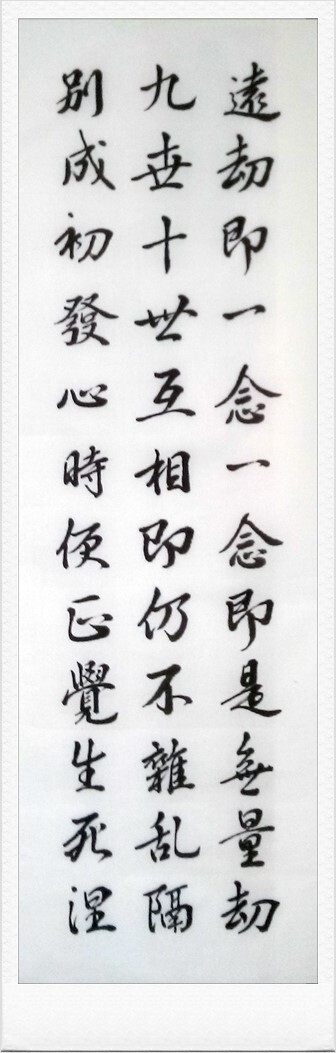 遠劫即一念一念即是無量劫
九世十世互相即仍不雜乱隔
別成初發心時便正覺生死涅